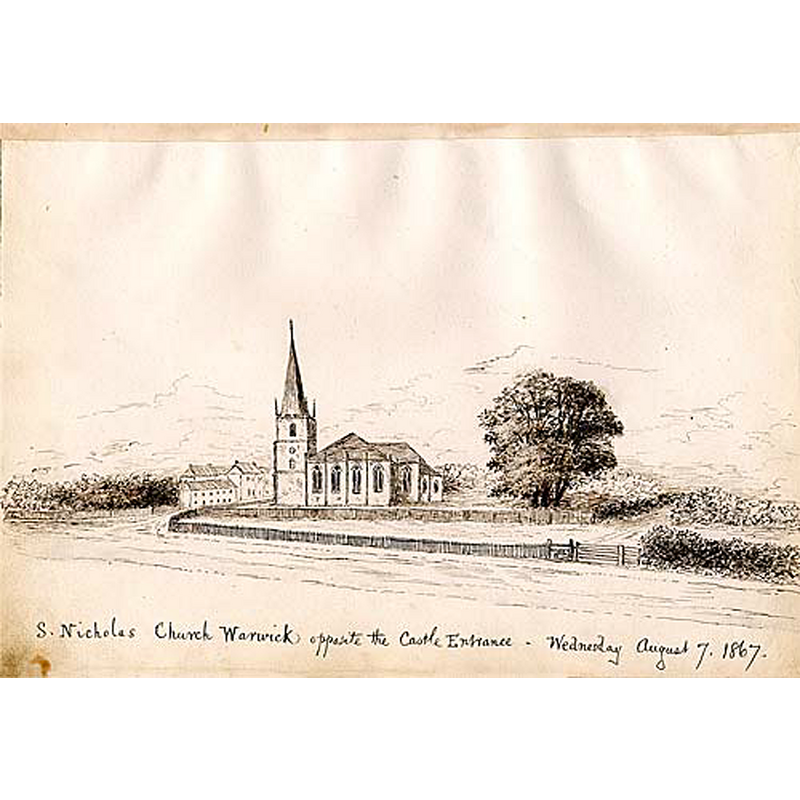 S. Nicholas Church Warwick opposite the Castle Entrance - Wednesday August 7. 1867.